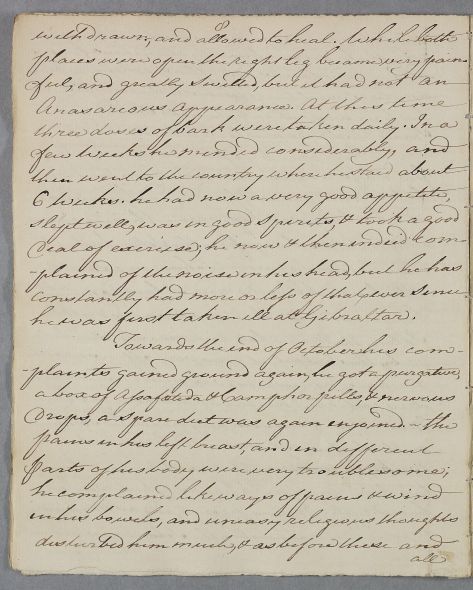 8
withdrawn, and allowed to heal. While both
places were open the right leg became very pain
ful, and greatly swelled, but it had not an
Anasarcous appearance. At this time
three doses of bark were taken daily. In a
few weeks he mended considerably, and
then went to the country where he staid about
6 weeks. he had now a very good appetite,
slept well, was in good spirits, & took a good
deal of exercise; he now & then indeed com-
-plained of the noise in his head, but he has
constantly had more or less of that, ever since
he was first taken ill at Gibraltar.
Towards the end of October his com-
-plaints gained ground again, he got a purgative,
a box of Assafœtida & Camphor pills, & nervous
Drops, a spare diet was again enjoined - the
pains in his left breast, and in different
parts of his body were very troublesome;
he complained likeways of pains & wind
in his bowels, and uneasy religious thoughts
disturbed him much, & as before these and
all